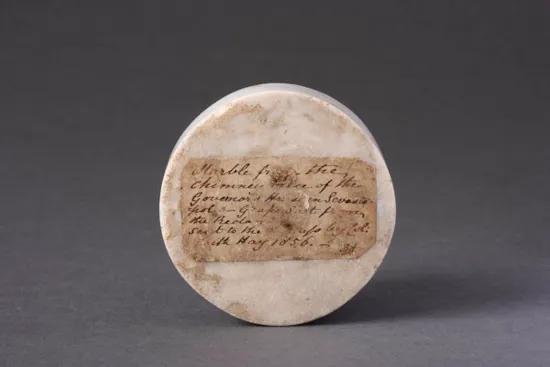 Marble from the
chimney piece of the
Governors House in Sevasto
pol — Grape Shot from
the Reda
sent to the by Col.
May 1856. —